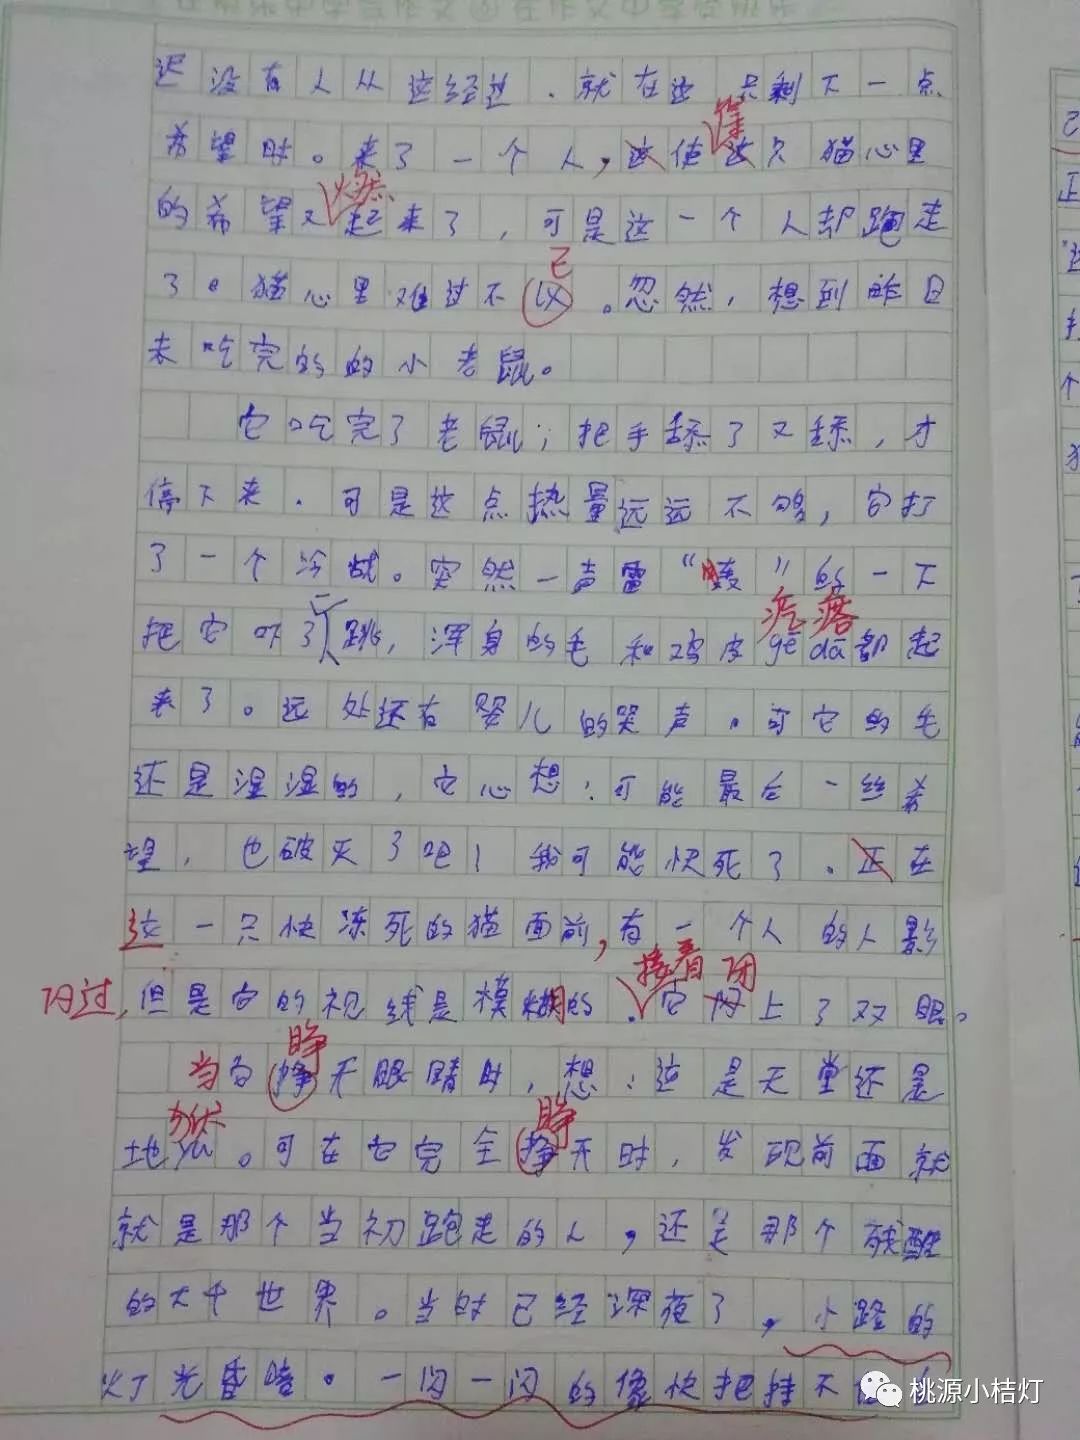 迟没有人从这经过.就在这只剩下一点
希望时。来了一个人,这使这只猫心里
的希望又燃起来了,可是这一个人却跑走
了。猫心里难过不以。忽然,想到昨日
已
未吃完的的小老鼠。
它吃完了老鼠;把手舔了又舔,才
停下来.可是这点热量远远不够,它打
了一个冷战。突然一声雷“轰”的一下
疙瘩
把它吓了一跳,浑身的毛和鸡皮gēdā都起
来了。远处还有婴儿的哭声.可它的毛
还是湿湿的,它心想:可能最后一丝希
望,也破灭了吧!我可能快死了.正在
这一只快冻死的猫面前,有一个人的人影
接着 闭
闪过,但是它的视线是模糊的.它闭上了双眼。
睁
当它挣开眼睛时,想:这是天堂还是
狱
睁
地yù。可在它完全挣开时,发现前面就
就是那个当初跑走的人,还是那个残酷
的大千世界。当时已经深夜了,小路的
灯光昏暗。一闪一闪的像快把持不住
桃源小桔灯